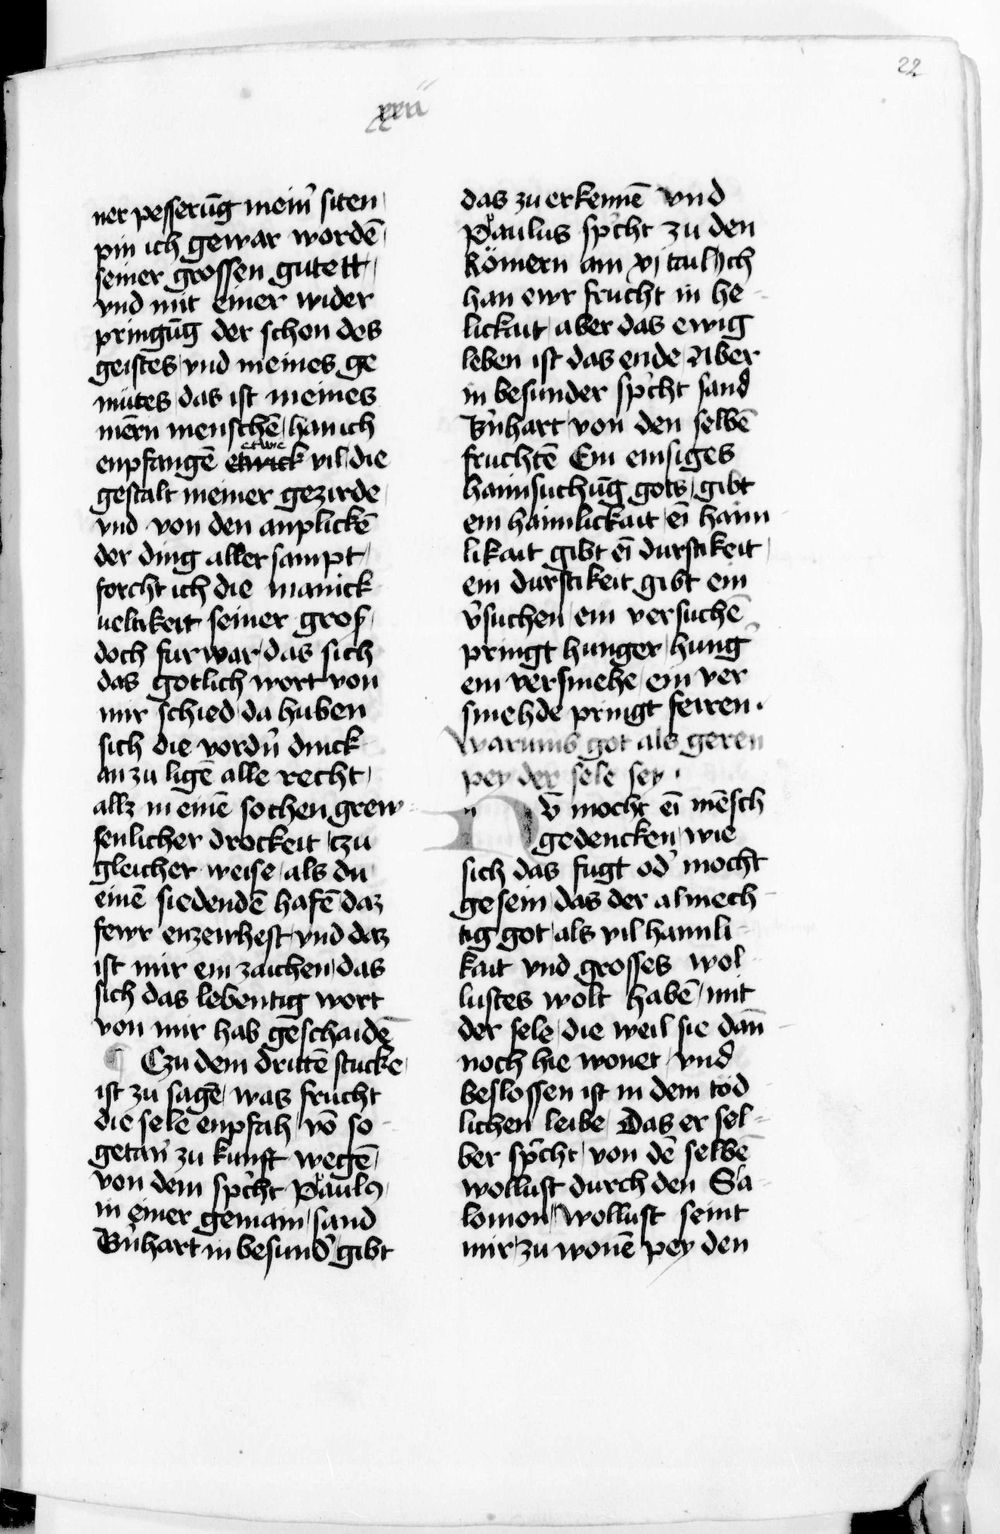 22
xxii
ner pesserūg mein̄ siten
pin ich gewar wordē
seiner grossen gutett
vnd mit einer wider
pringūg der schon des
geistes vnd meines ge
mütes das ist meines
inērn menschē han ich
enpfangē etwie vil die
gestalt meiner gezirde
vnd von den anplickē
der ding aller sampt
forcht ich die manick
ueltikeit seiner groß
doch fur war das sich
das gotlich wort von
mir schied da huben
sich die vordn̄ dinck
an zu ligē alle recht
allz in einē sochen grew
senlicher drockeit czu
gleicher weise als du
einē siedendē hafē daz
fewr enzewhest vnd daz
ist mir ein zaichen das
sich das lebentig wort
von mir hab geschaidē
Czu dem drittē stucke
ist zu sagē was frucht
die sele enpfah vō so
getan̄ zu kunft wegē
von dem sp̄cht Päulꝰ
in einer gemain sand
Bn̄hart in besund̄ gibt
das zu erkennē vnd
Päulus sp̄cht zu den
Römern am vj tail Ich
han ewr frucht in he
lickait aber das ewig
leben ist das ende Aber
in besunder sp̄cht sand
Bn̄hart von den selbē
fruchtē Ein emsiges
haimsuchūg gots gibt
ein haimlickait eī haim
likait gibt eī durstikeit
ein durstikeit gibt ein
v̄suchen ein versuchē
pringt hunger hunḡ
ein versmehe ein ver
smehde pringt feiren.
Warumb got als geren
pey der sele sey.
Nv̄ mocht eī mēsch
gedencken wie
sich das fugt od̄ mocht
gesein das der almech
tig got als vil haimli
kait vnd grosses wol
lustes wolt habē mit
der sele die weil sie dān
noch hie wonet vnd
beslossen ist in dem töd
lichen leibe Das er sel
ber sp̄cht von dē selbē
wollust durch den Sa
lomon Wollust seint
mir zu wonē pey den